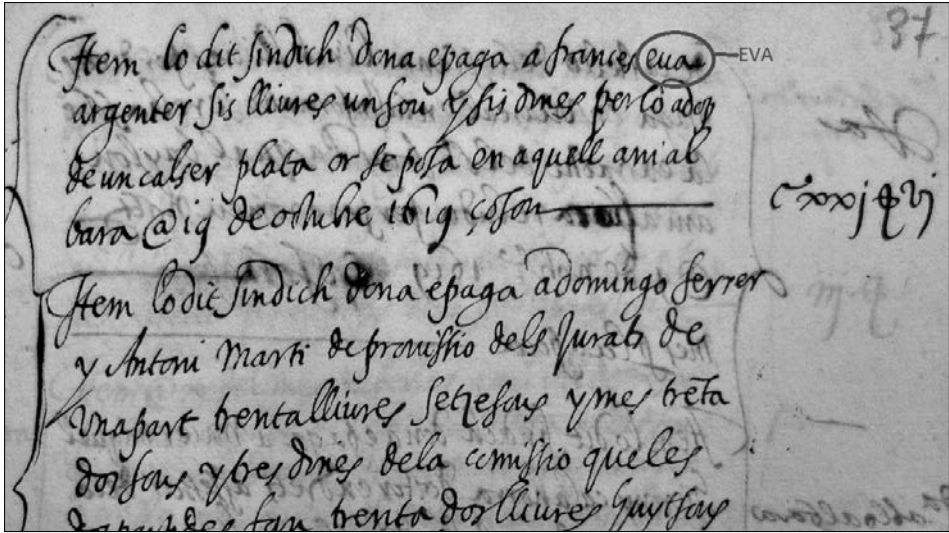 37
Item lo dit sindich dona e paga a frances eua EVA
argenter sis lliures un sou y sis dines per lo adop
de un calser plata or se posa en aquell ab al
bara @ 19 de octubre 1619 ço son
cxxj
Item lo dit sindich dona e paga a domingo ferrer
y Antoni Marti de provissio dels Jurats de
una part trenta lliures setze sous y mes treta
dos sous y tres dines de la comissio que les
trenta dos lliures huyt sous